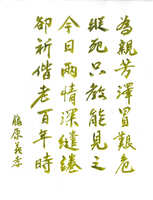 為觀芳澤冒艱危
縱死只教能見之
今日兩情深繾綣
卻祈偕老百年時
藤原義孝